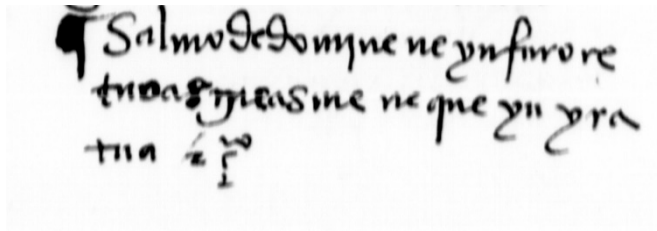 ¶ Salmo de domine ne yn furore
tuo arguas me ne que yn yra
tua